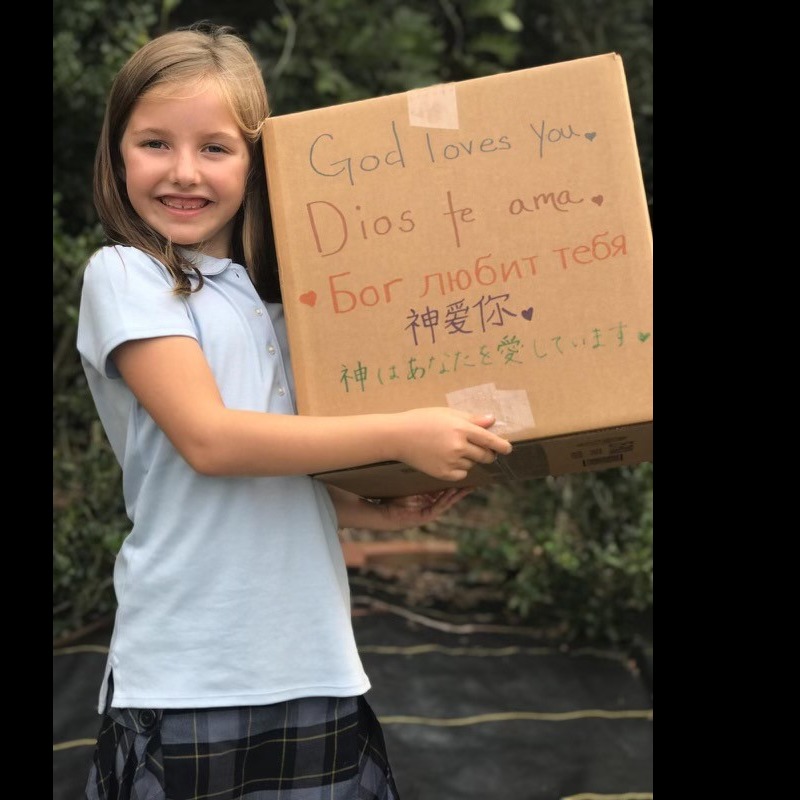 God loves you ♥
Dios te ama ♥
♥ Бог любит тебя
神爱你 ♥
神はあなたを愛しています ♥